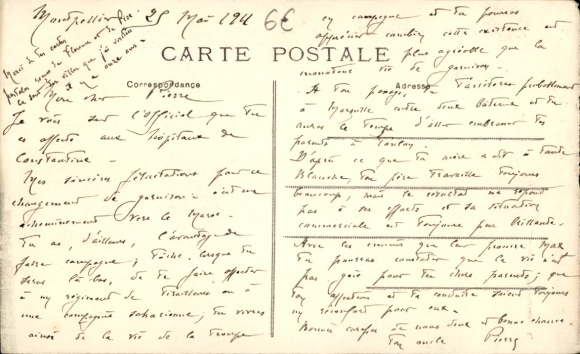 Montpellier 25 Mai 1911
6€
Merci de tes cartes
postales de Florence et de Pise
ce sont des villes que j'ai visitées
il y a onze ans
CARTE POSTALE
Correspondance
Adresse
Mon cher Pierre
Je vois sur l'Officiel que tu
es affecté aux hôpitaux de
Constantine -
Mes sincères félicitations pour ce
changement de garnison - c'est un
acheminement vers le Maroc -
Tu as, d'ailleurs, l'avantage de
faire campagne; tâche, lorsque tu
seras là-bas, de te faire affecter
à un régiment de Tirailleurs ou à
une compagnie saharienne; tu vivras
ainsi de la vie de la troupe
en campagne et tu pourras
apprécier combien cette existence est
plus agréable que la
monotone vie de garnison -
A ton passage, tu t'arrêteras probablement
à Marseille entre deux bateaux et tu
auras le temps d'aller embrasser tes
parents à Toulon -
D'après ce que ta mère a dit à tante
Blanche, ton père travaille toujours
beaucoup, mais le résultat ne répond
pas à ses efforts et sa situation
commerciale est toujours peu brillante -
Avec les ennuis que leur procure Max
tu pourras constater que la vie n'est
pas gaie pour tes chers parents; que
ton affection et ta conduite soient toujours
un réconfort pour eux -
Bonnes caresses de nous deux et bonne chance -
Ton oncle Pierre